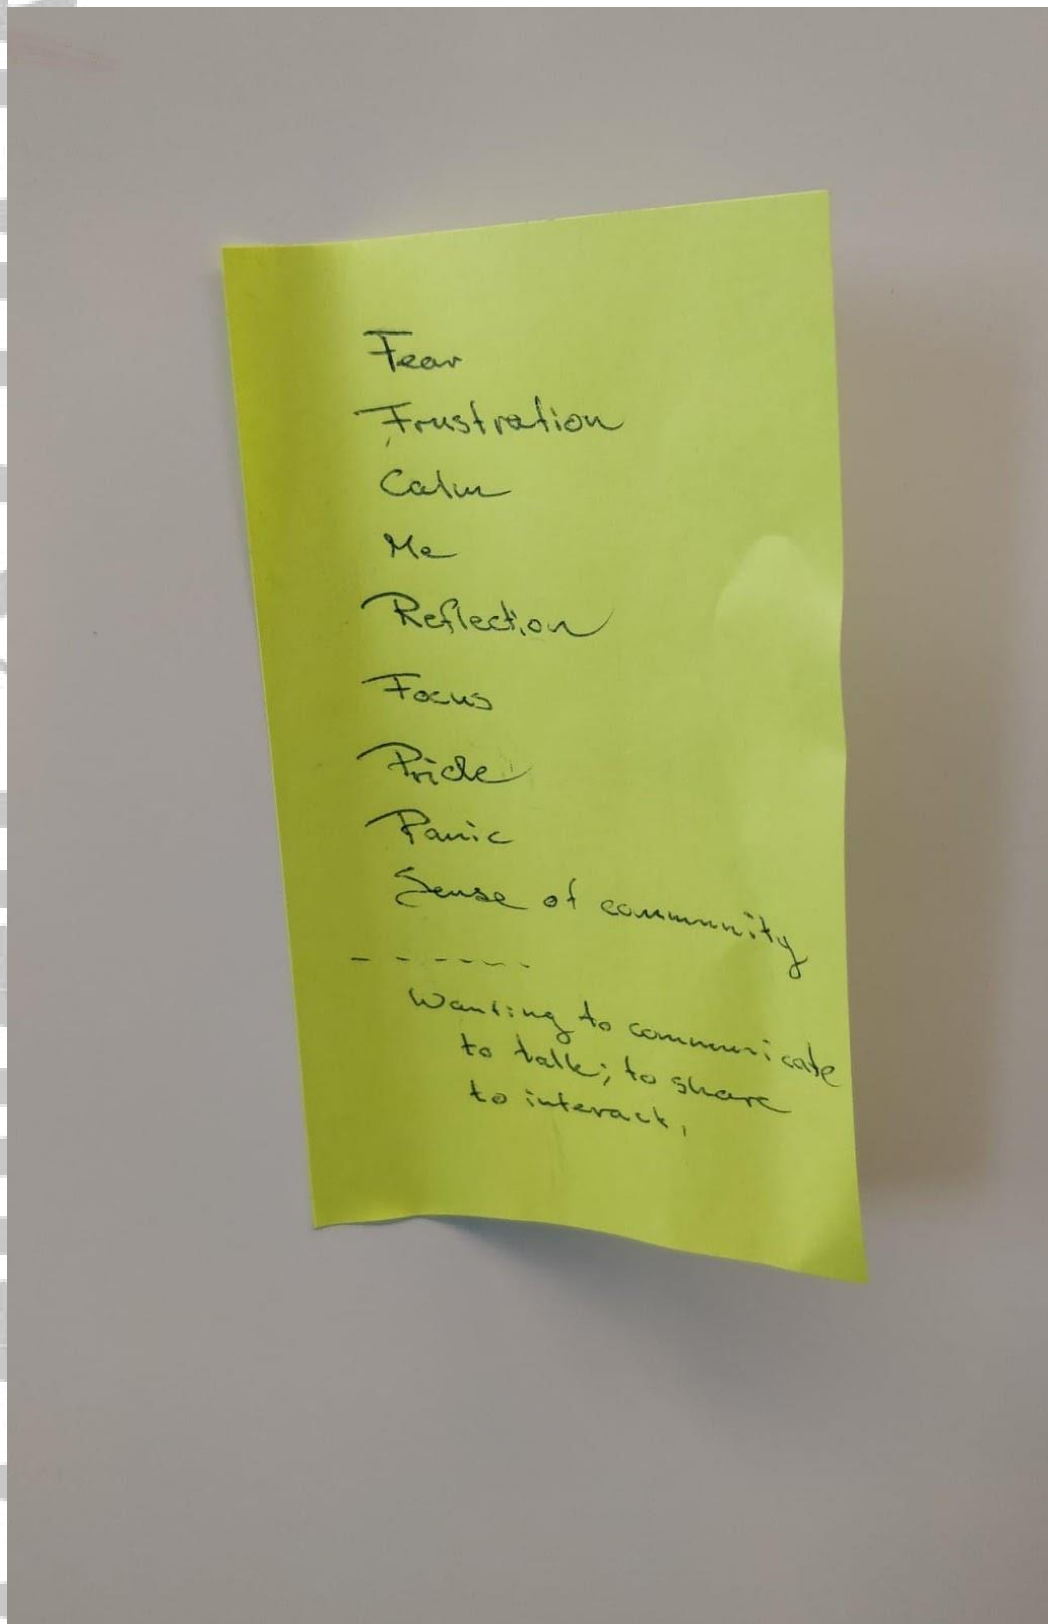 Fear
Frustration
Calm
Me
Reflection
Focus
Pride
Panic
Sense of community
- - - - - -
Wanting to communicate
to talk; to share
to interact,